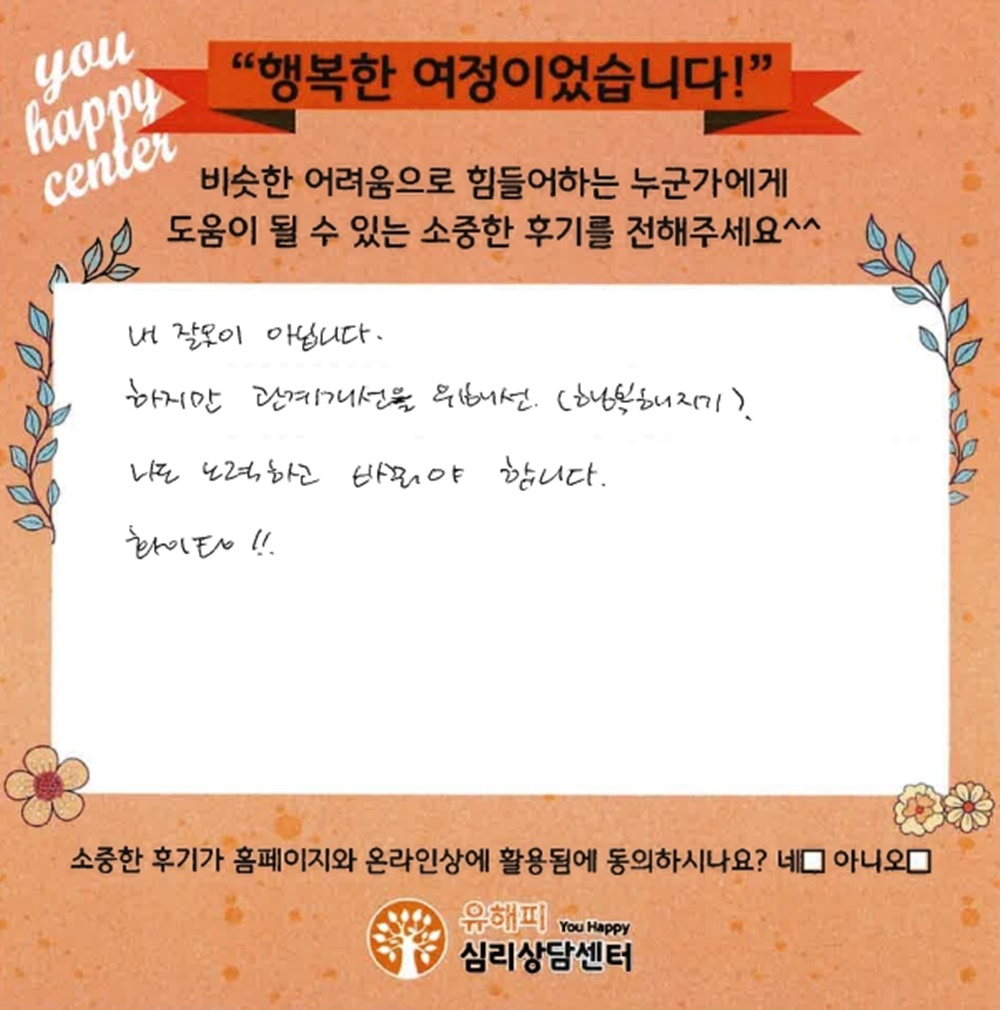 you
happy
center
“행복한 여정이었습니다!”
비슷한 어려움으로 힘들어하는 누군가에게
도움이 될 수 있는 소중한 후기를 전해주세요^^
내 잘못이 아닙니다.
하지만 관계개선을 위해선. (행복해지기).
나도 노력하고 바뀌야 합니다.
화이팅!!
소중한 후기가 홈페이지와 온라인상에 활용됨에 동의하시나요? 네□ 아니오□
유해피 You Happy
심리상담센터